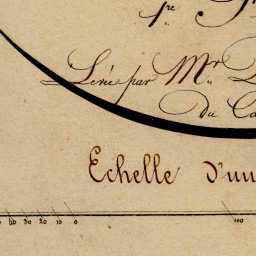 Levé par Mr
du Ca
Echelle d'un
50 30 20 10 0 100